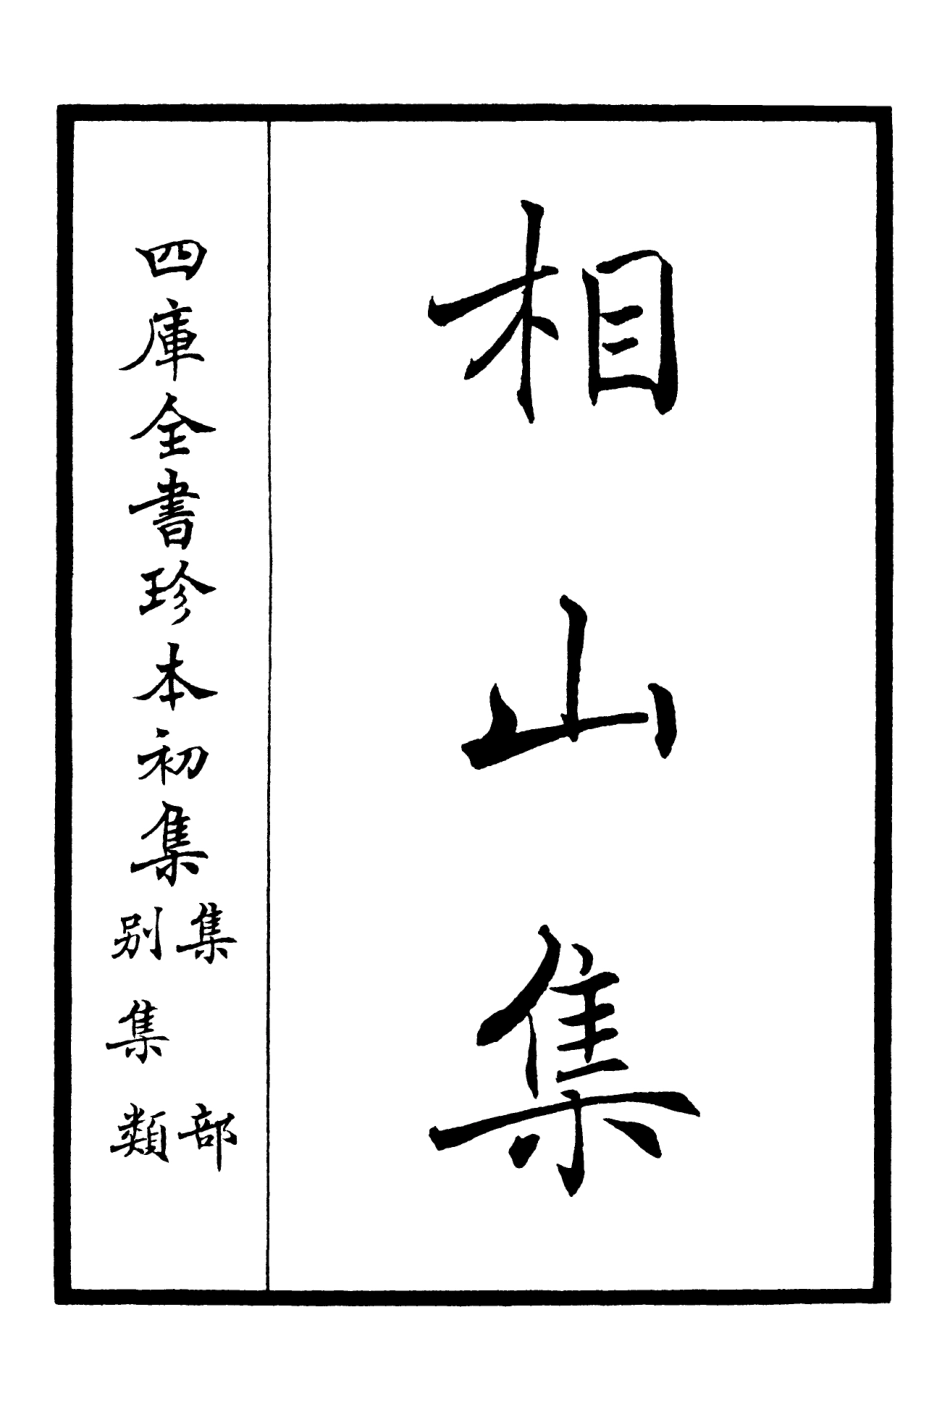 相山集
四庫全書珍本初集
集部
別集類